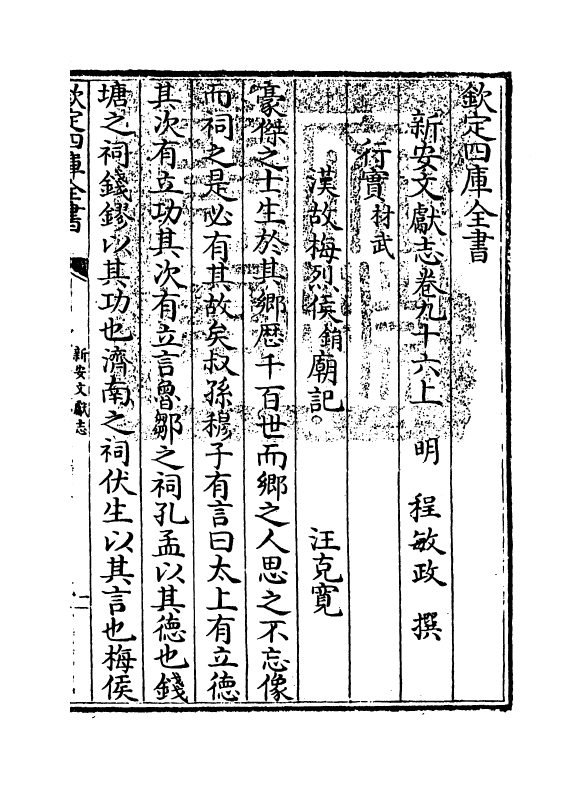 欽定四庫全書
新安文獻志卷九十六上 明 程敏政 撰
行實 材武
漢故梅烈侯鋗廟記 汪克寛
豪傑之士生於其鄉歴千百世而鄉之人思之不忘像
而祠之是必有其故矣叔孫穆子有言曰太上有立德
其次有立功其次有立言魯鄒之祠孔孟以其德也錢
塘之祠錢鏐以其功也濟南之祠伏生以其言也梅侯
欽定四庫全書
新安文獻志